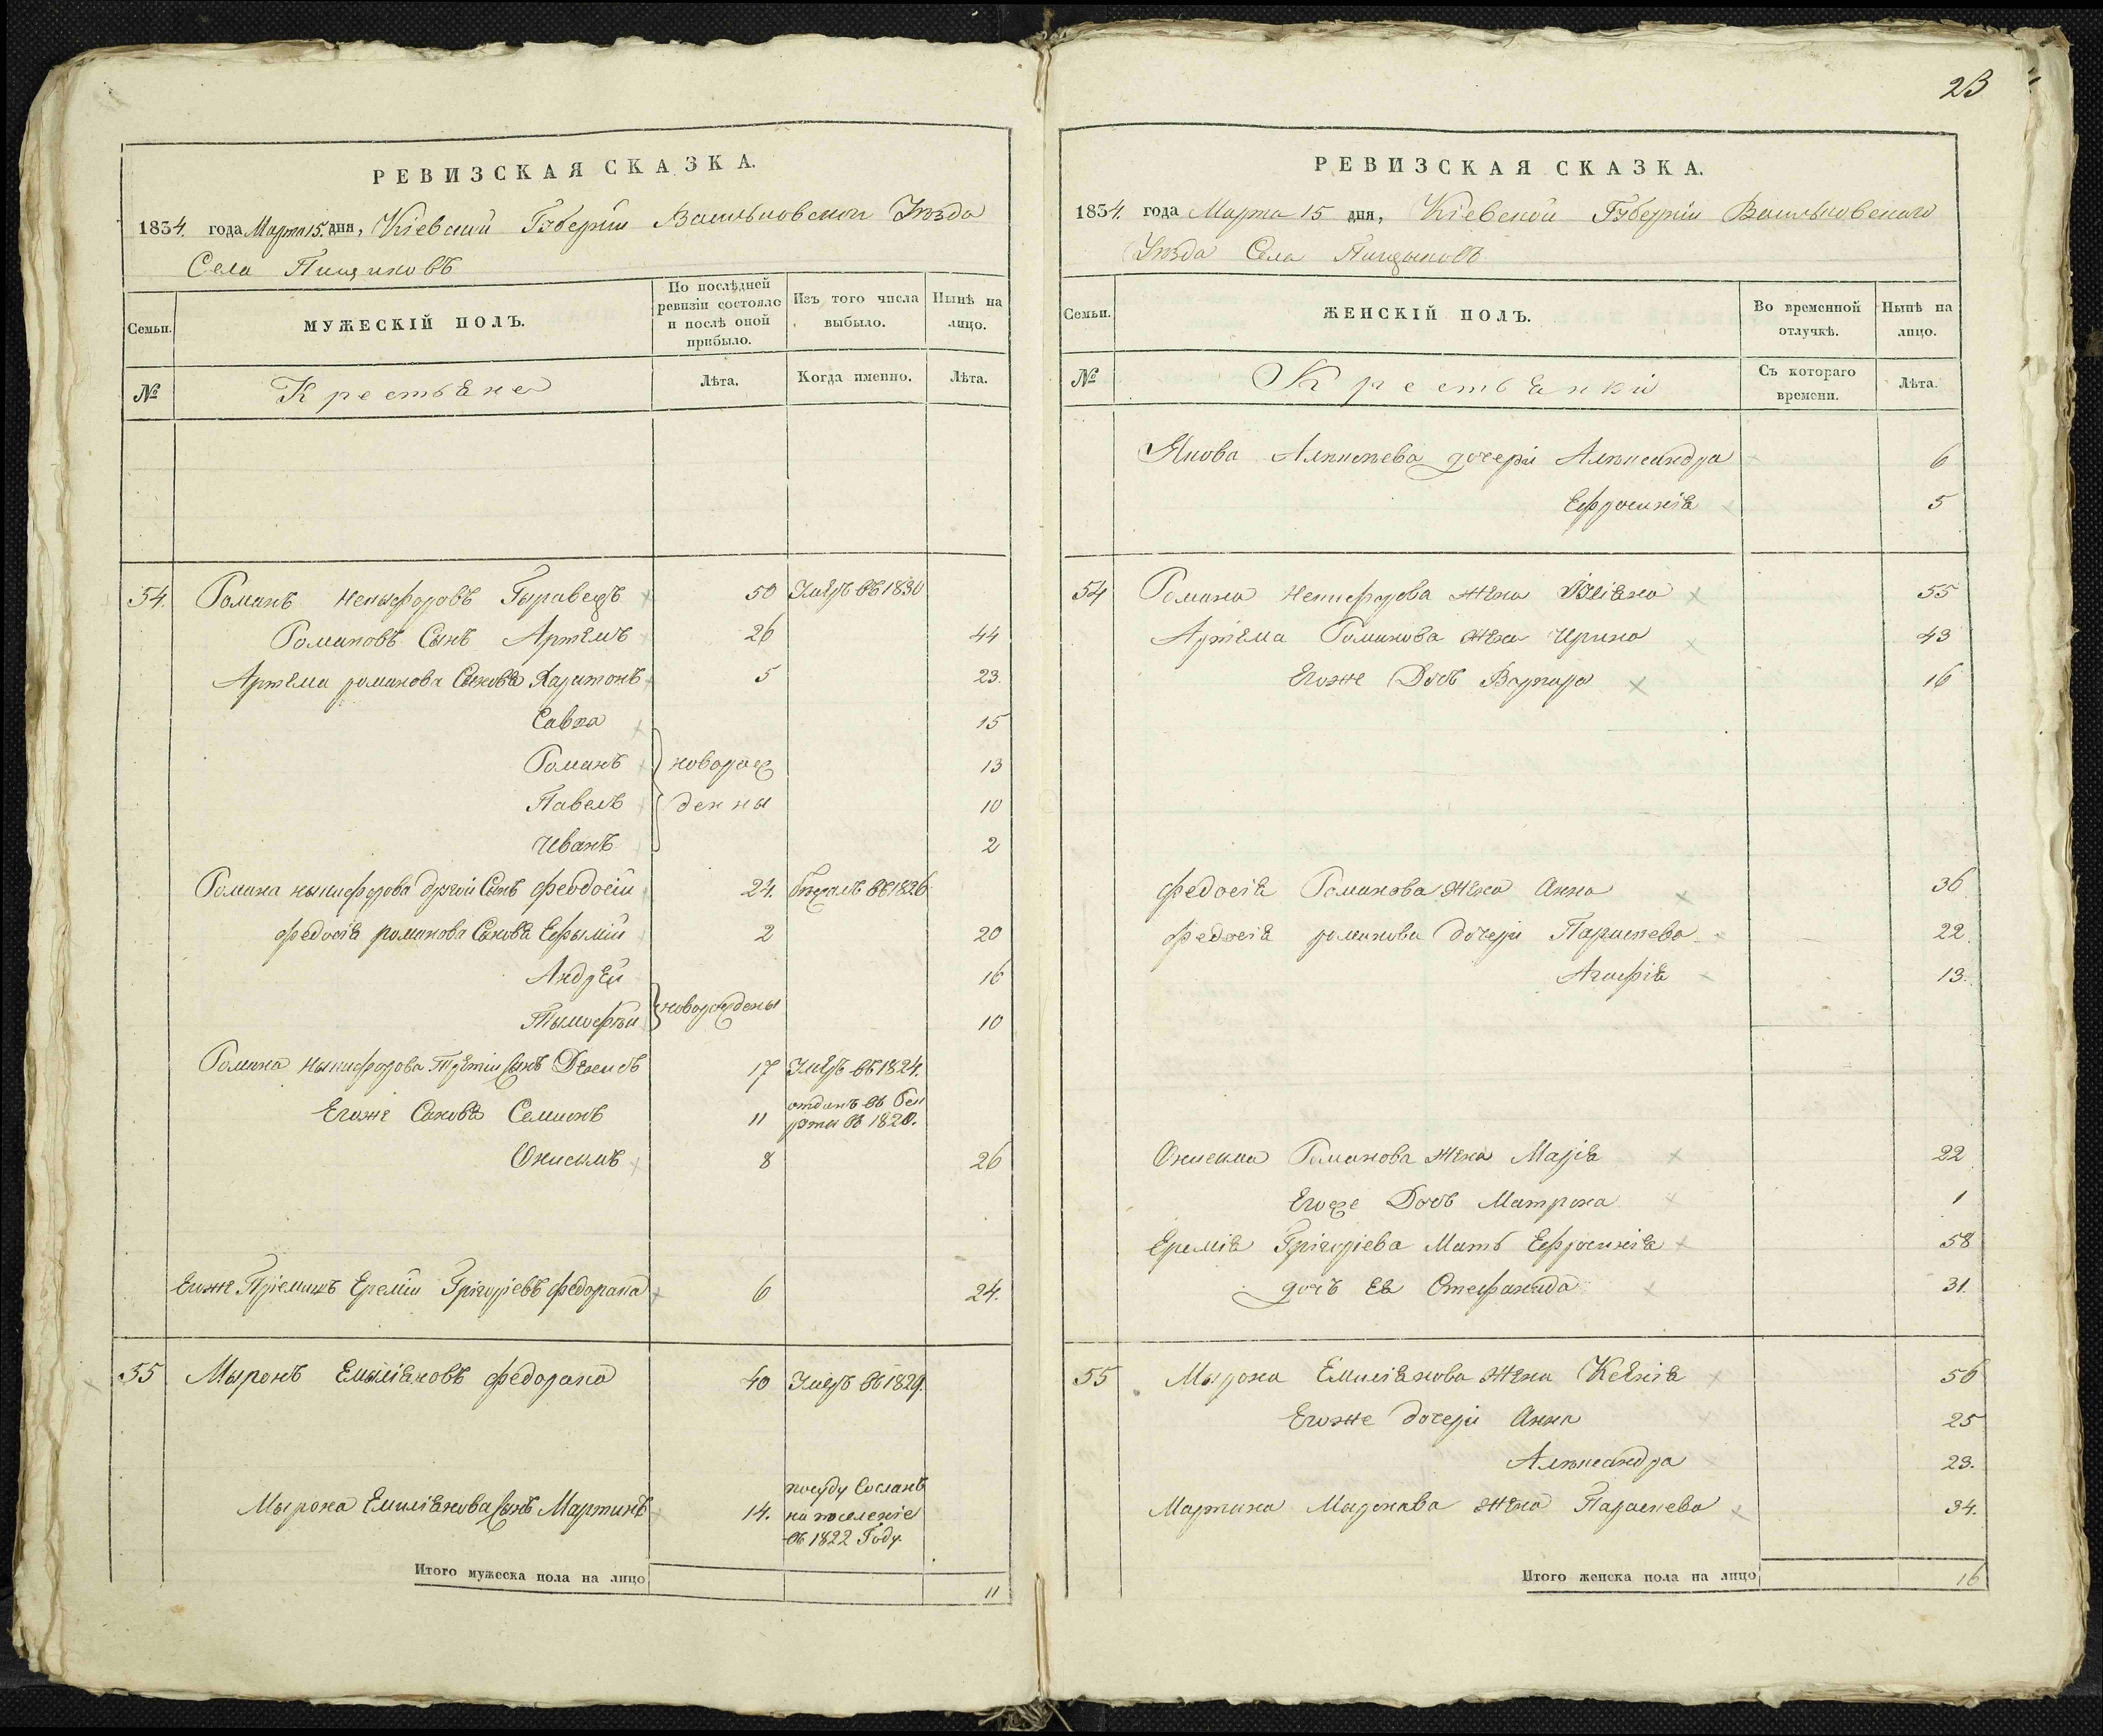 РЕВИЗСКАЯ СКАЗКА.
1834. года Марта 15. дня, Кіевской Губерніи Васильковскои Уѣзда
Села Пищиковъ
Семьи.
МУЖЕСКІЙ ПОЛЪ.
По послѣдней ревизіи состояло и послѣ оной прибыло.
Изъ того числа выбыло.
Нынѣ на лицо.
№
Крестьяне
Лѣта.
Когда именно.
Лѣта.
54. Романъ Никифоровъ 50 Умеръ въ 1830
Романовъ Сынъ Артемъ 26 44
Артема романова Сыновья Харитонъ 5 23.
Савка 15
Романъ новорож 13
Павелъ денны 10
Иванъ 2
Романа ныкифорова другой Сынъ Феодосій 24. бежалъ въ 1826
Федосія романова Сыновя Ефымій 2 20
Андрей 16
Тымофѣй новорождены 10
Романа Ныкифорова Третій Сынъ Денисъ 17 Умеръ въ 1824.
Егоже Сыновя Семионъ 11 отданъ въ Рек
руты въ 1820.
Онисимъ 8 26
Егоже Пріемышъ Еремій Григоріевъ Федорака 6 24.
55 Мыронъ Емыліяновъ Федорака 40 Умеръ въ 1829.
Мырона Емиліянова Сынъ Мартинъ 14. посуду Сосланъ
на поселеніе
въ 1822 Году.
Итого мужеска пола на лицо 11
23
РЕВИЗСКАЯ СКАЗКА.
1834. года Марта 15 дня, Кіевской Губерніи Васильковскаго
Уѣзда Села Пищыковъ
Семьи.
ЖЕНСКІЙ ПОЛЪ.
Во временной отлучкѣ.
Нынѣ на лицо.
№
Крестьянки
Съ котораго времени.
Лѣта.
Якова Алексѣева дочери Александра 6
Ефросинія 5
54 Романа Никифорова жена 55
Артема Романова жена Ирина 43
Егоже Дочь Варвара 16
Федосія Романова жена Анна 36
Федосія романова дочери Параскева 22.
Агафія 13.
Онисима Романова жена Марія 22
Егоже Дочь Матрона 1
Еремія Григоріева Мать Ефросинія 58
дочъ ея Стефанида 31.
55 Мырона Емиліянова жена Ксенія 56
Егоже дочери Анна 25
Александра 23.
Мартина Миронава жена Параскева 34.
Итого женска пола на лицо 16